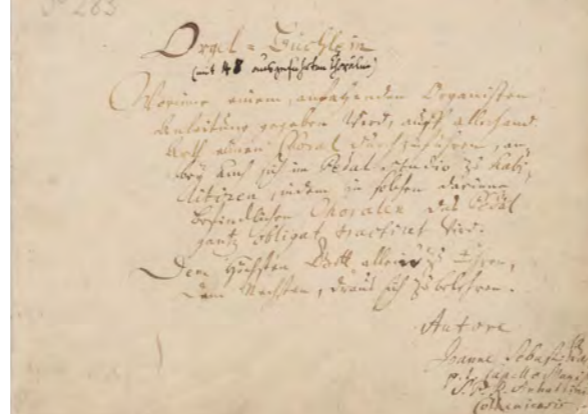 Orgel-Büchlein
(mit 48 ausgeführten Chorälen)
Worinne einem anfahenden Organisten
Anleitung gegeben wird, auff allerhand
Arth einen Choral durchzuführen, an-
bey auch sich im Pedal studio zu habi-
litiren, indem in solchen darinne
befindlichen Choralen das Pedal
gantz obligat tractiret wird.
Dem Höchsten Gott allein zu Ehren,
Dem Nechsten, draus sich zu belehren.
Autore
Joanne Sebast. Bach
p. t. Capellae Magistri
S. P. R. Anhaltini-
Cotheniensis